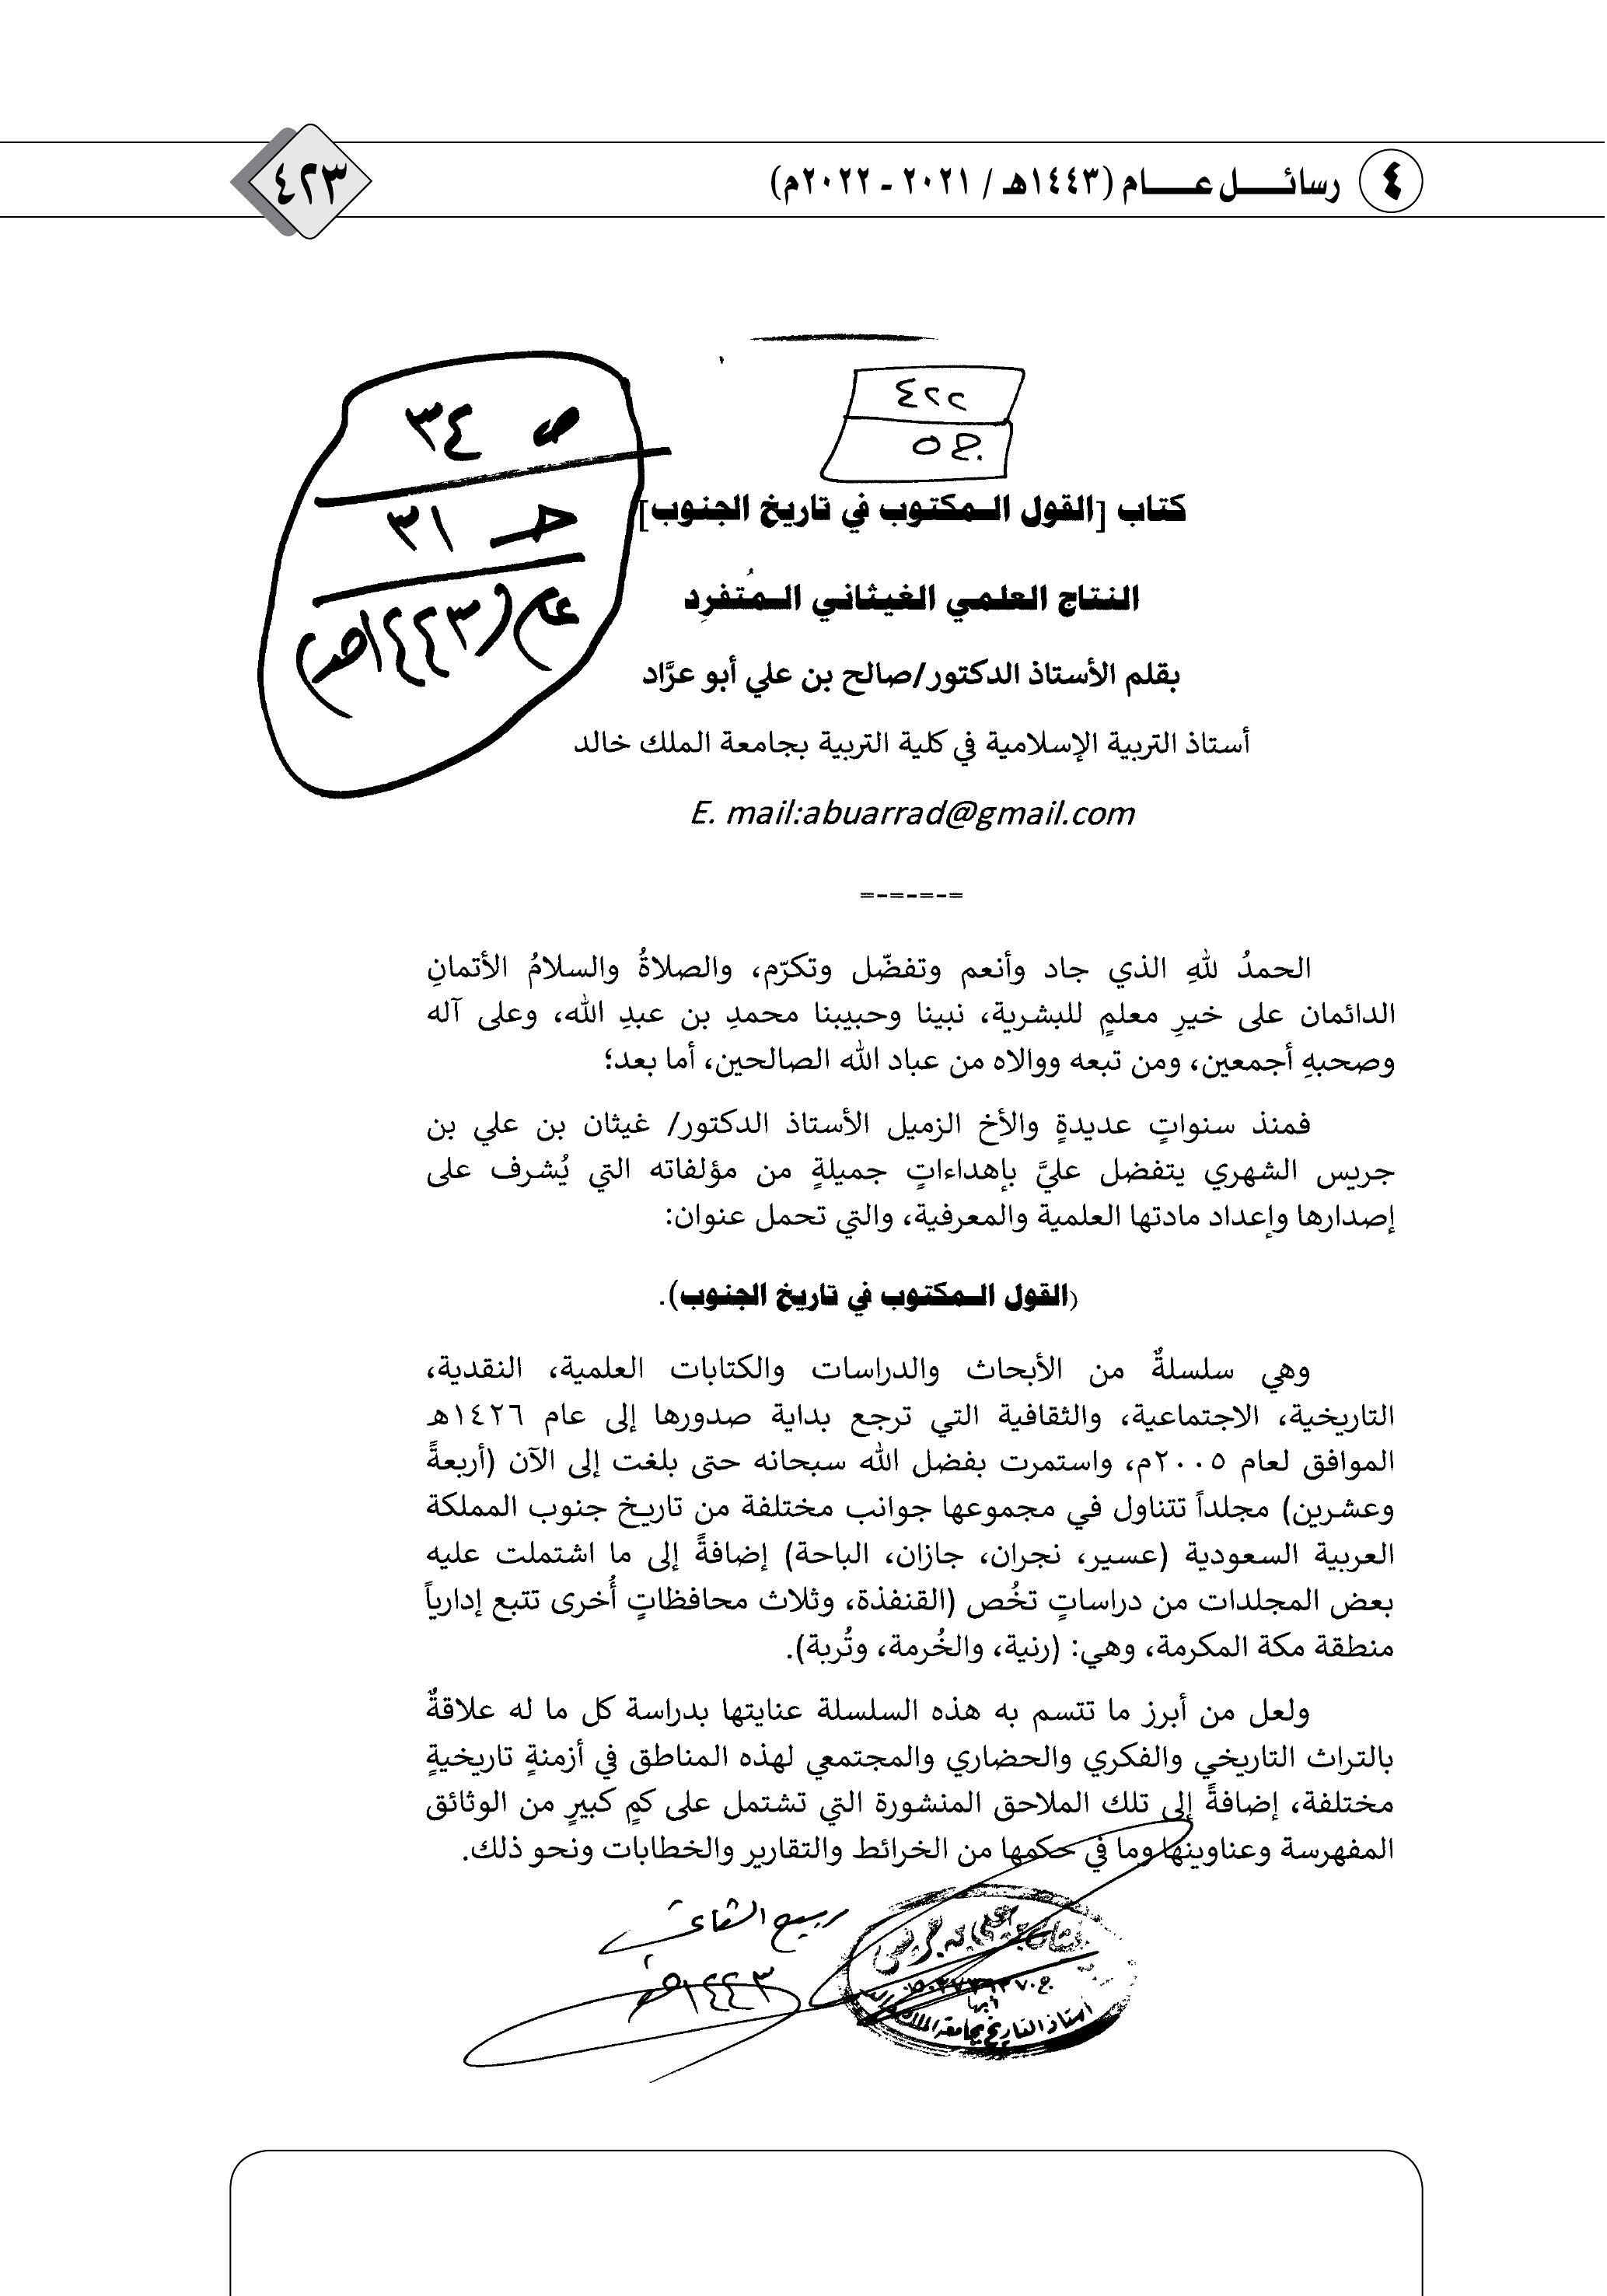 ٤ رسائل عام (١٤٤٣هـ / ٢٠٢١ - ٢٠٢٢م) ٤٢٣
ص ٣٤
٤٢٢
ج ٥
كتاب [القول المكتوب في تاريخ الجنوب]
حـ ٣١
النتاج العلمي الغيثاني المُتفرِد
عام (١٤٤٣هـ)
بقلم الأستاذ الدكتور/صالح بن علي أبو عرَّاد
أستاذ التربية الإسلامية في كلية التربية بجامعة الملك خالد
E. mail:abuarrad@gmail.com
=-=-=-=
الحمدُ للهِ الذي جاد وأنعم وتفضّل وتكرّم، والصلاةُ والسلامُ الأتمانِ
الدائمان على خيرِ معلمٍ للبشرية، نبينا وحبيبنا محمدِ بن عبدِ الله، وعلى آله
وصحبهِ أجمعين، ومن تبعه ووالاه من عباد الله الصالحين، أما بعد؛
فمنذ سنواتٍ عديدةٍ والأخ الزميل الأستاذ الدكتور/ غيثان بن علي بن
جريس الشهري يتفضل عليَّ بإهداءاتٍ جميلةٍ من مؤلفاته التي يُشرف على
إصدارها وإعداد مادتها العلمية والمعرفية، والتي تحمل عنوان:
(القول المكتوب في تاريخ الجنوب).
وهي سلسلةٌ من الأبحاث والدراسات والكتابات العلمية، النقدية،
التاريخية، الاجتماعية، والثقافية التي ترجع بداية صدورها إلى عام ١٤٢٦هـ
الموافق لعام ٢٠٠٥م، واستمرت بفضل الله سبحانه حتى بلغت إلى الآن (أربعةً
وعشرين) مجلداً تتناول في مجموعها جوانب مختلفة من تاريخ جنوب المملكة
العربية السعودية (عسير، نجران، جازان، الباحة) إضافةً إلى ما اشتملت عليه
بعض المجلدات من دراساتٍ تخُص (القنفذة، وثلاث محافظاتٍ أُخرى تتبع إدارياً
منطقة مكة المكرمة، وهي: (رنية، والخُرمة، وتُربة).
ولعل من أبرز ما تتسم به هذه السلسلة عنايتها بدراسة كل ما له علاقةٌ
بالتراث التاريخي والفكري والحضاري والمجتمعي لهذه المناطق في أزمنةٍ تاريخيةٍ
مختلفة، إضافةً إلى تلك الملاحق المنشورة التي تشتمل على كمٍ كبيرٍ من الوثائق
المفهرسة وعناوينها وما في حكمها من الخرائط والتقارير والخطابات ونحو ذلك.
ربيع الثاني
١٤٤٣هـ
بن علي بن جريس
أبها
أستاذ التاريخ بجامعة الملك خالد